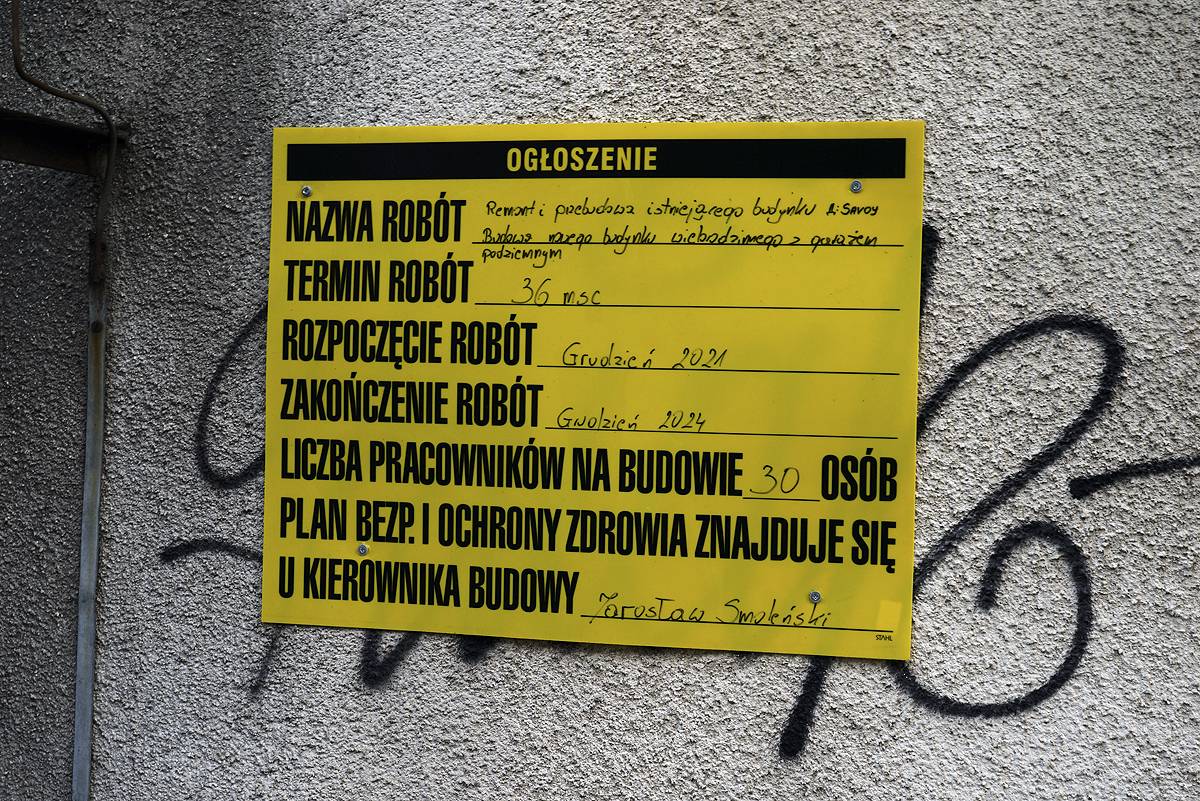 OGŁOSZENIE
NAZWA ROBÓT Remont i przebudowa istniejącego budynku D.SAVOY
Budowa nowego budynku wielorodzinnego z garażem
podziemnym
TERMIN ROBÓT 36 msc
ROZPOCZĘCIE ROBÓT Grudzień 2021
ZAKOŃCZENIE ROBÓT Grudzień 2024
LICZBA PRACOWNIKÓW NA BUDOWIE 30 OSÓB
PLAN BEZP. I OCHRONY ZDROWIA ZNAJDUJE SIĘ
U KIEROWNIKA BUDOWY Jarosław Smoleński
STAHL